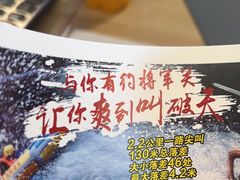 与你有约将军关
让你爽到叫破天
2.2公里一路尖叫
130米总落差
大小落差46处
最大落差4.2米